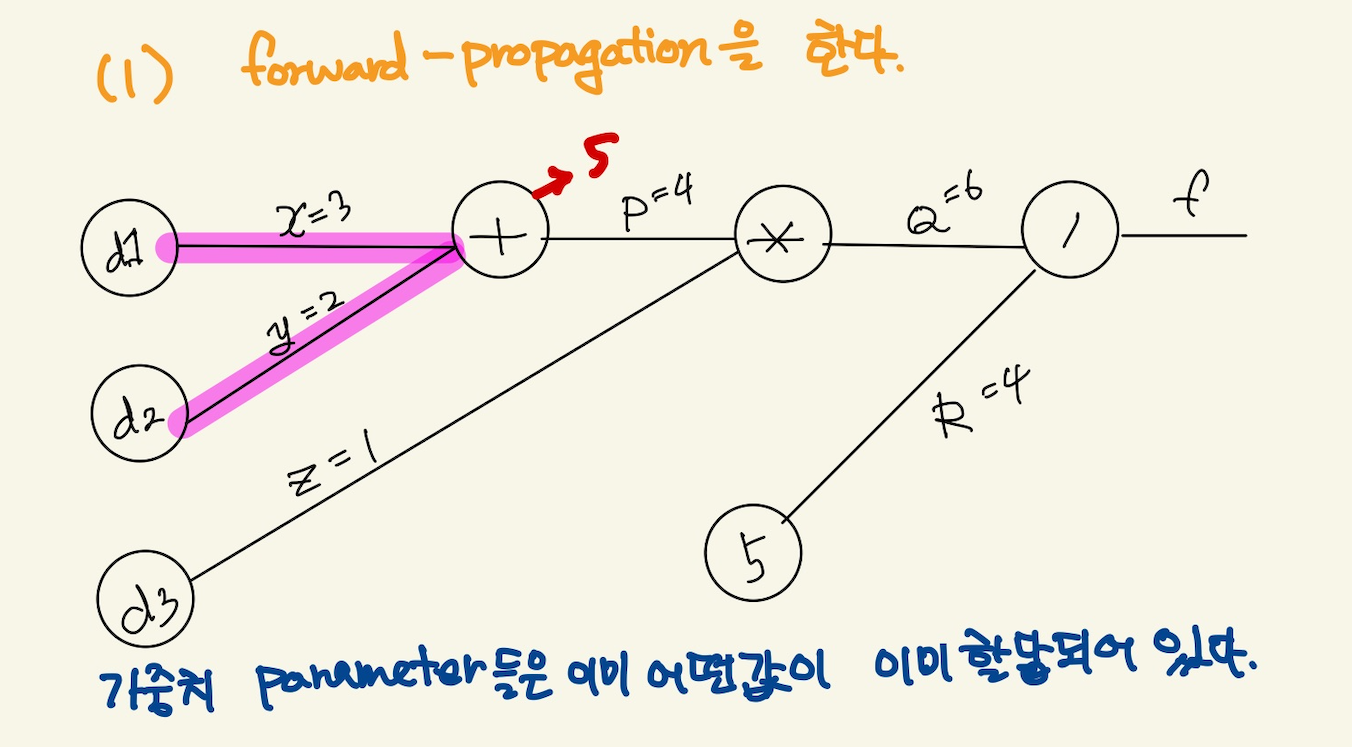 (1) forward-propagation을 한다.
5
x=3
P=4
Q=6
f
d1
+
*
/
y=2
d2
R=4
z=1
5
d3
가중치 parameter들은 이미 어떤값이 이미 할당되어 있다.